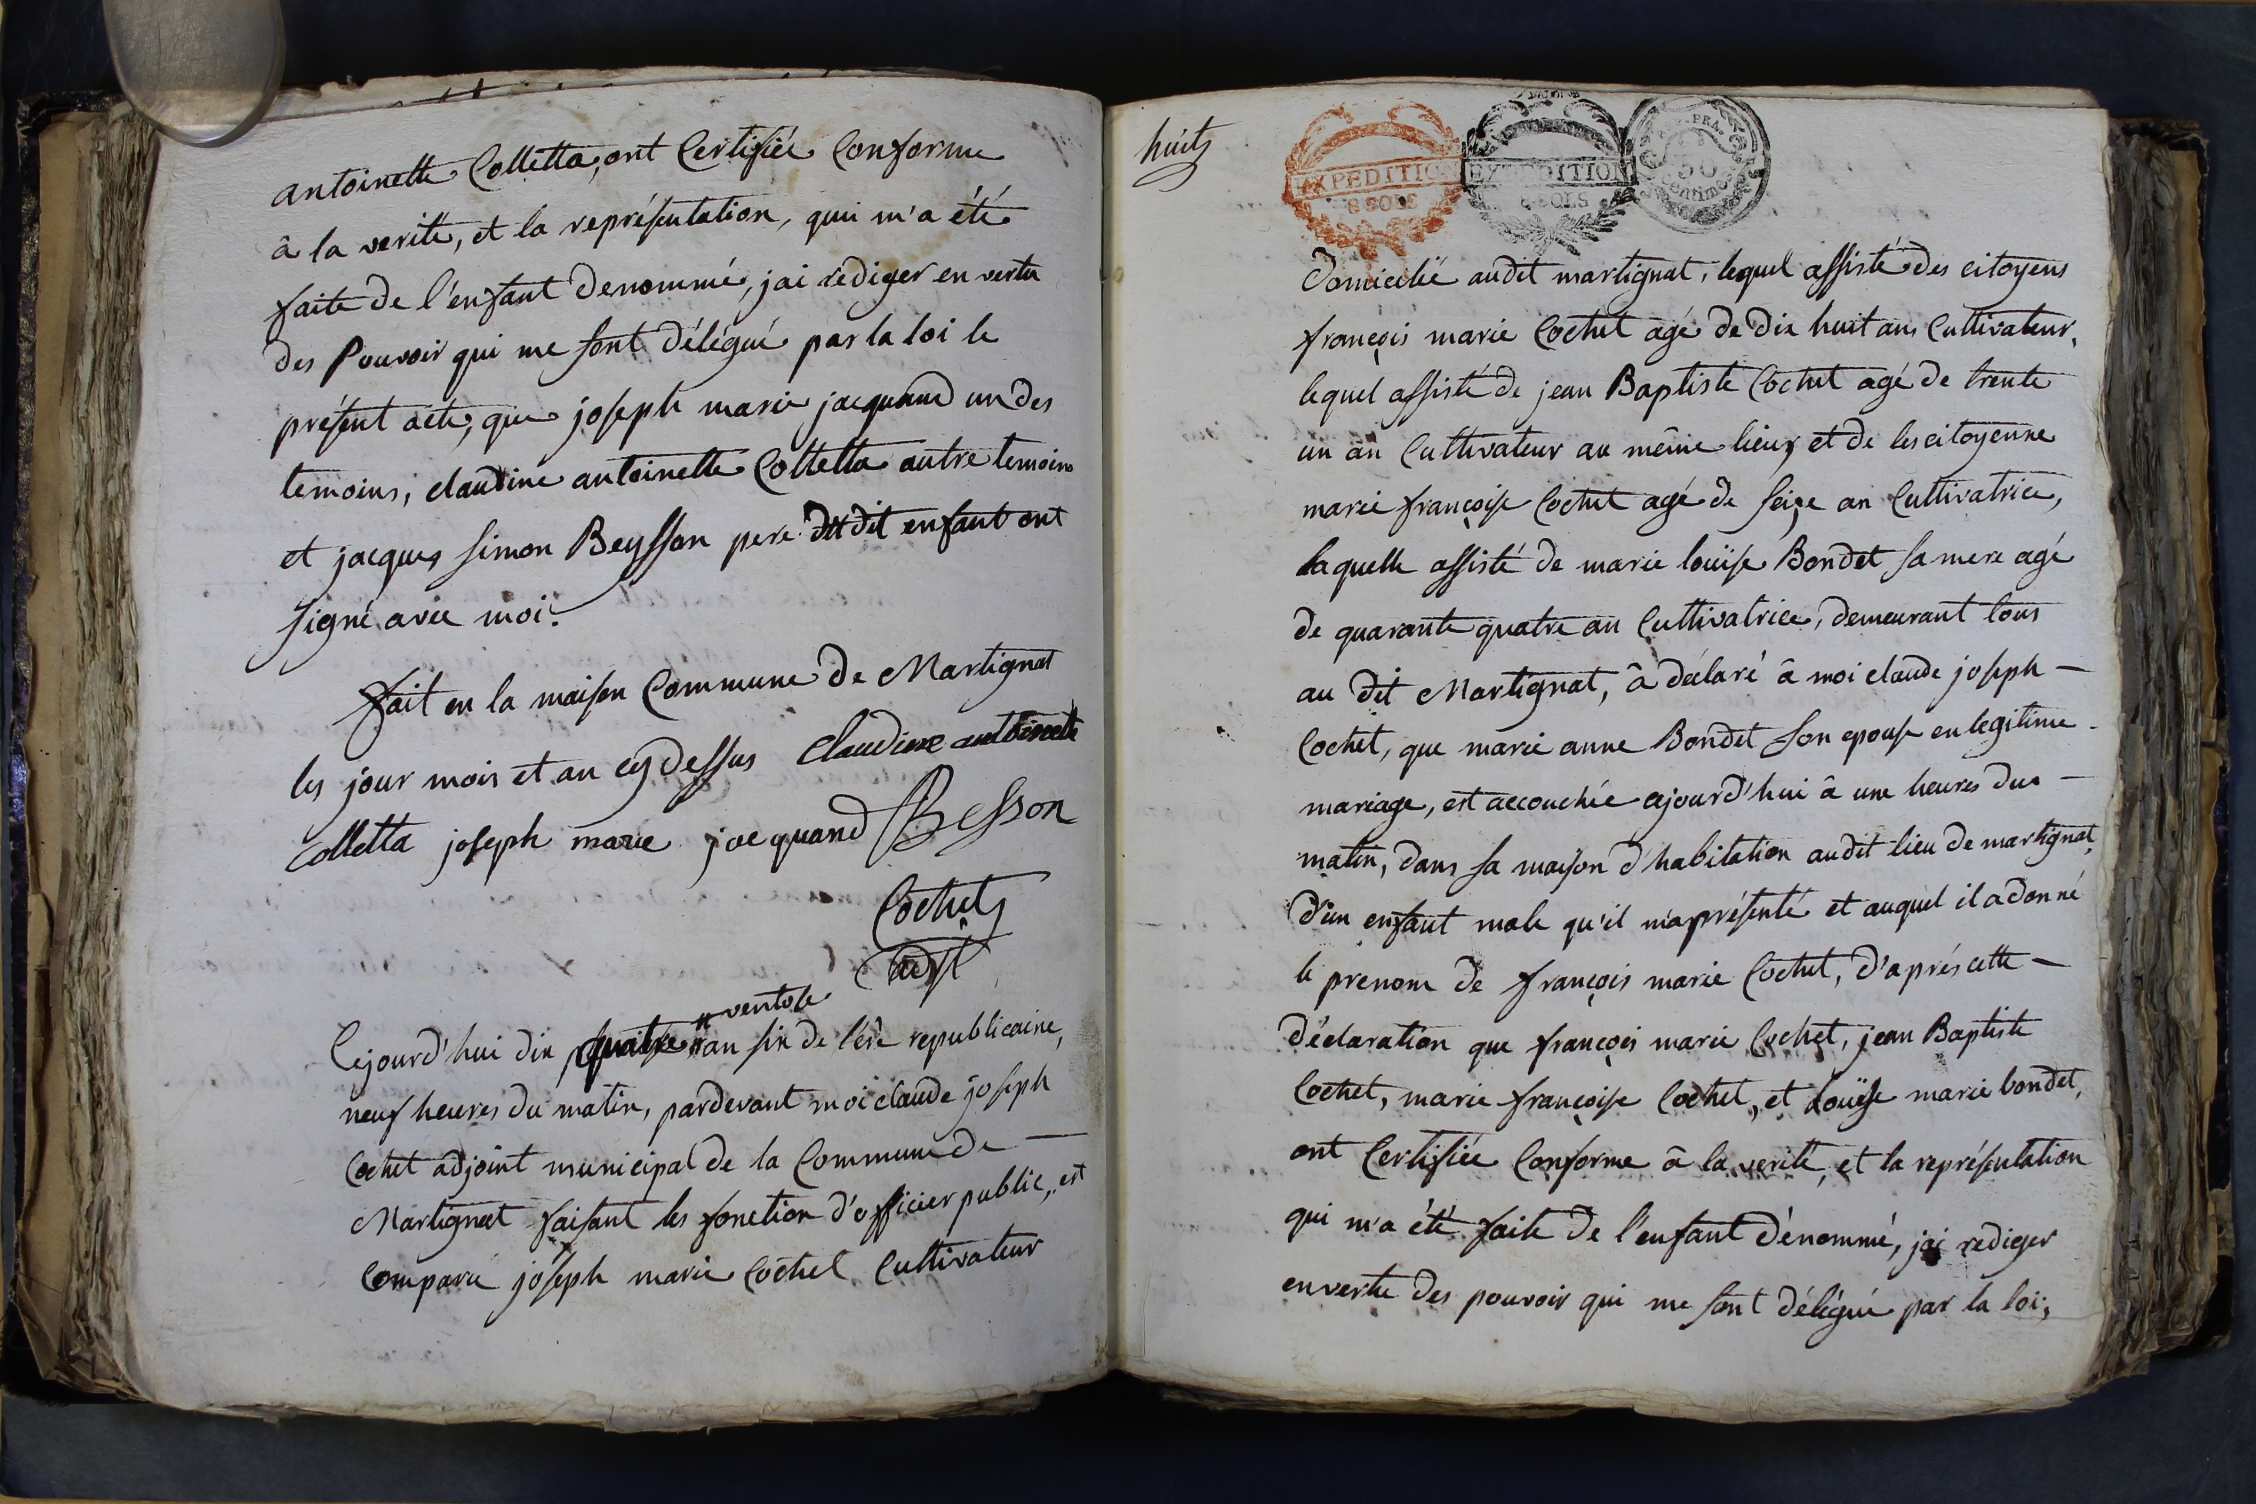 antoinette Colletta, ont Certifiée Conforme
â la verite, et la représentation, qui m'a été
faite de l'enfant denommé, jai rédiger en vertu
des Pouvoir qui me sont délégué par la loi le
présent acte, que joseph marie jacquand un des
temoins, claudine antoinette Colletta autre temoins
et jacques simon Beysson pere dudit enfant ont
signé avec moi.
fait en la maison Commune de Martignat
les jour mois et an cy dessus Claudine antoinette
Colletta joseph marie jacquand Besson
Cochet
adjt
ventose
Cejourd'hui dix quatre an six de l'ére republicaine,
neuf heures du matin, pardevant moi claude joseph
Cochet adjoint municipal de la Commune de
Martignat faisant les fonction d'officier public, est
Comparu joseph marie Cochet Cultivateur
huit
EXPEDITION
8 SOLS
EXPEDITION
8 SOLS
50
Centimes
Domicilié audit martignat, lequel assisté des citoyens
françois marie Cochet agé de dix huit ans Cultivateur,
lequel assisté de jean Baptiste Cochet agé de trente
un an Cultivateur au même lieux et de les citoyenne
marie françoise Cochet agé de seize an Cultivatrice,
laquelle assisté de marie louïse Bondet sa mere agé
de quarante quatre an Cultivatrice, demeurant tous
au dit Martignat, â déclaré â moi claude joseph
Cochet, que marie anne Bondet son epouse en legitime
mariage, est accouchée cejourd'hui â une heures du
matin, dans sa maison d'habitation audit lieu de martignat,
d'un enfant male qu'il m'a présenté et auquel il a donné
le prenom de françois marie Cochet, d'aprés cette
déclaration que françois marie Cochet, jean Baptiste
Cochet, marie françoise Cochet, et Louïse marie bondet,
ont Certifiée Conforme â la verité, et la représentation
qui m'a été faite de l'enfant dénommé, jai rediger
en vertu des pouvoir qui me sont délégué par la loi,